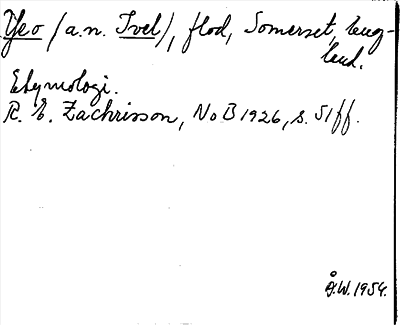 Yeo (a.n. Ivel), flod, Somerset, Eng-
land.
Etymologi.
R. E. Zachrisson, NoB 1926, s. 51ff.
Å.W. 1954.